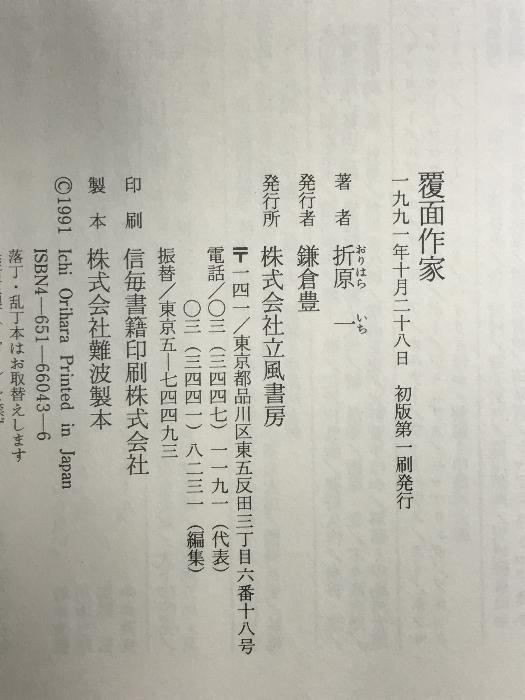 覆面作家
一九九一年十月二十八日　初版第一刷発行
著者　折原　一
おりはら　いち
発行者　鎌倉豊
発行所　株式会社立風書房
〒一四一／東京都品川区東五反田三丁目六番十八号
電話／〇三（三四四七）一一九一（代表）
〇三（三四四一）八二三一（編集）
振替／東京五―七四四九三
印刷　信毎書籍印刷株式会社
製本　株式会社難波製本
©1991 Ichi Orihara Printed in Japan
ISBN4―651―66043―6
落丁・乱丁本はお取替えします